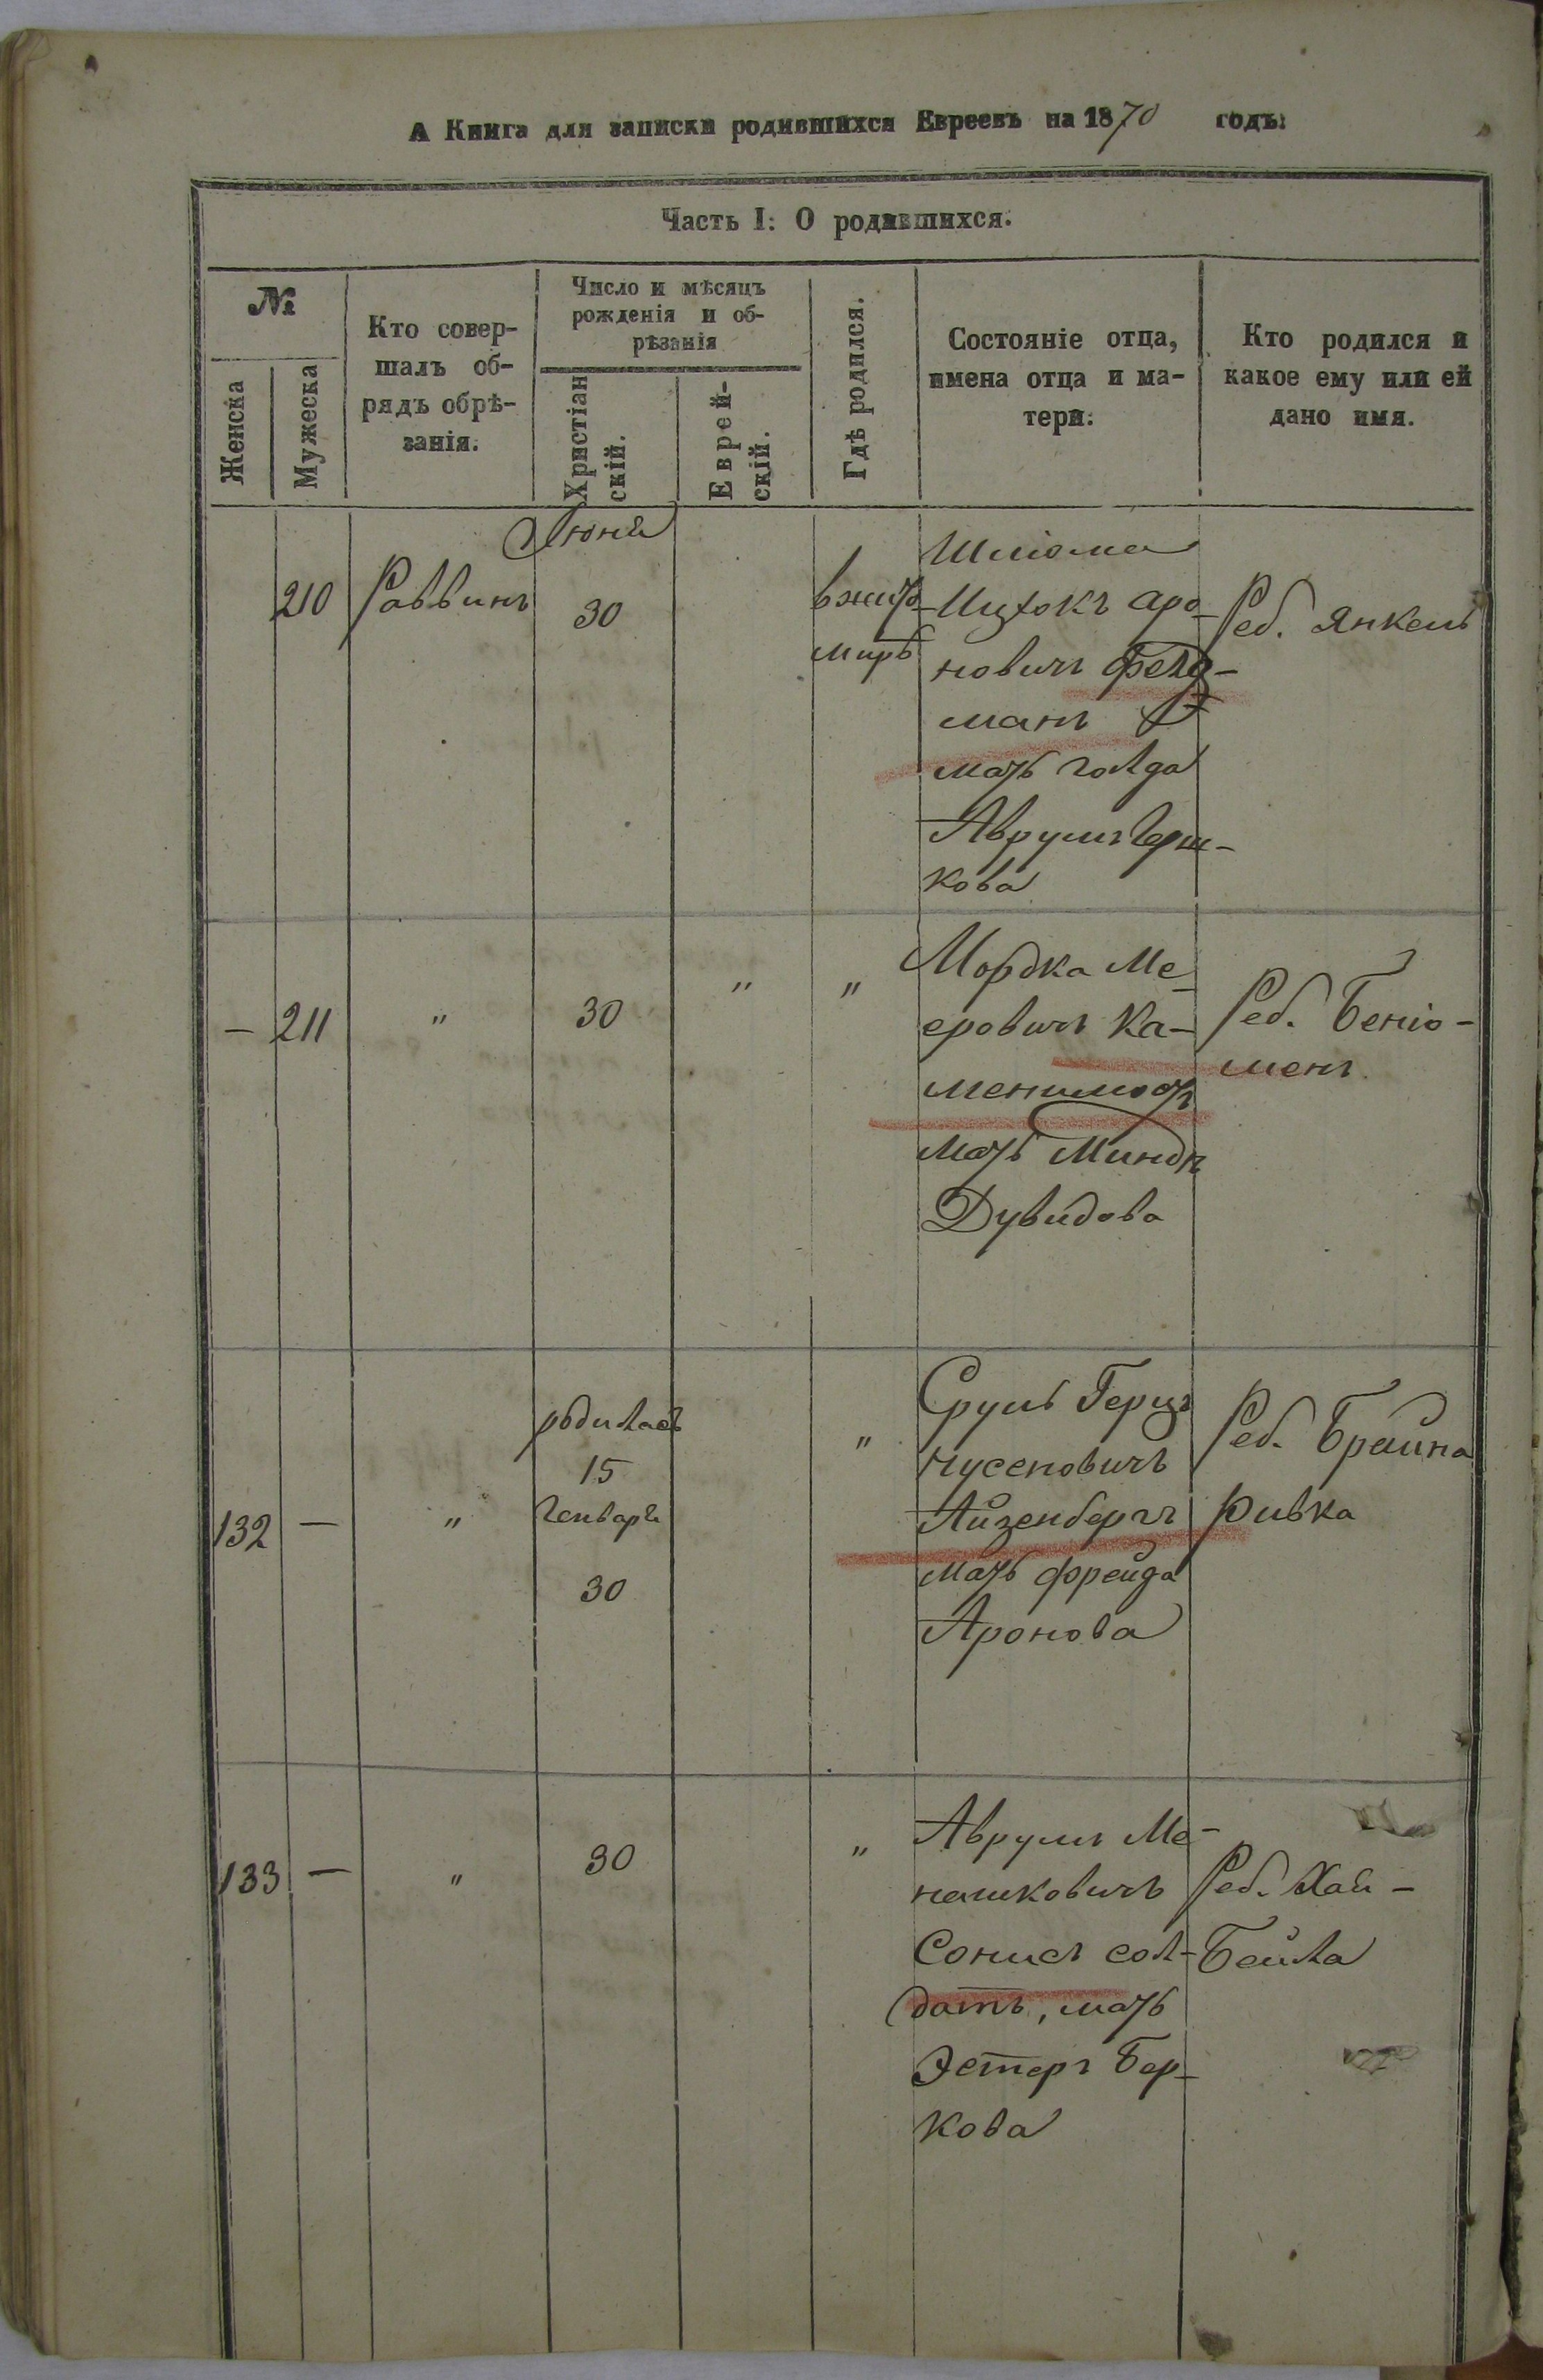 А Книга для записки родившихся Евреевъ на 1870 годъ.
Часть I: О родившихся.
№
Женска
Мужеска
Кто совер-
шалъ об-
рядъ обрѣ-
занія.
Число и мѣсяцъ
рожденія и об-
рѣзанія
Христіан
скій.
Еврей-
скій.
Гдѣ родился.
Состояніе отца,
имена отца и ма-
тери.
Кто родился и
какое ему или ей
дано имя.
210
Раввинъ
Іюня
30
в жито
мирѣ
Шліома
Ицхокъ аро-
новичъ Фелд-
манъ
мать голда
Аврумъ Герш-
кова
Реб. Янкель
—
211
"
30
"
"
Мордка Ме-
еровичъ Ка-
менмостъ
мать Миндя
Дувидова
Реб. Беніо-
менъ
132
—
"
родилась
15
Генваря
30
"
Сруль Герцъ
нусеновичъ
Айзенбергъ
мать фрейда
Аронова
Реб. Брайна
Ривка
133
—
"
30
"
Аврумъ Ме-
нашковичъ
Сонисъ сол-
датъ, мать
Эстеръ Бер-
кова
Реб. Хая-
Бейла